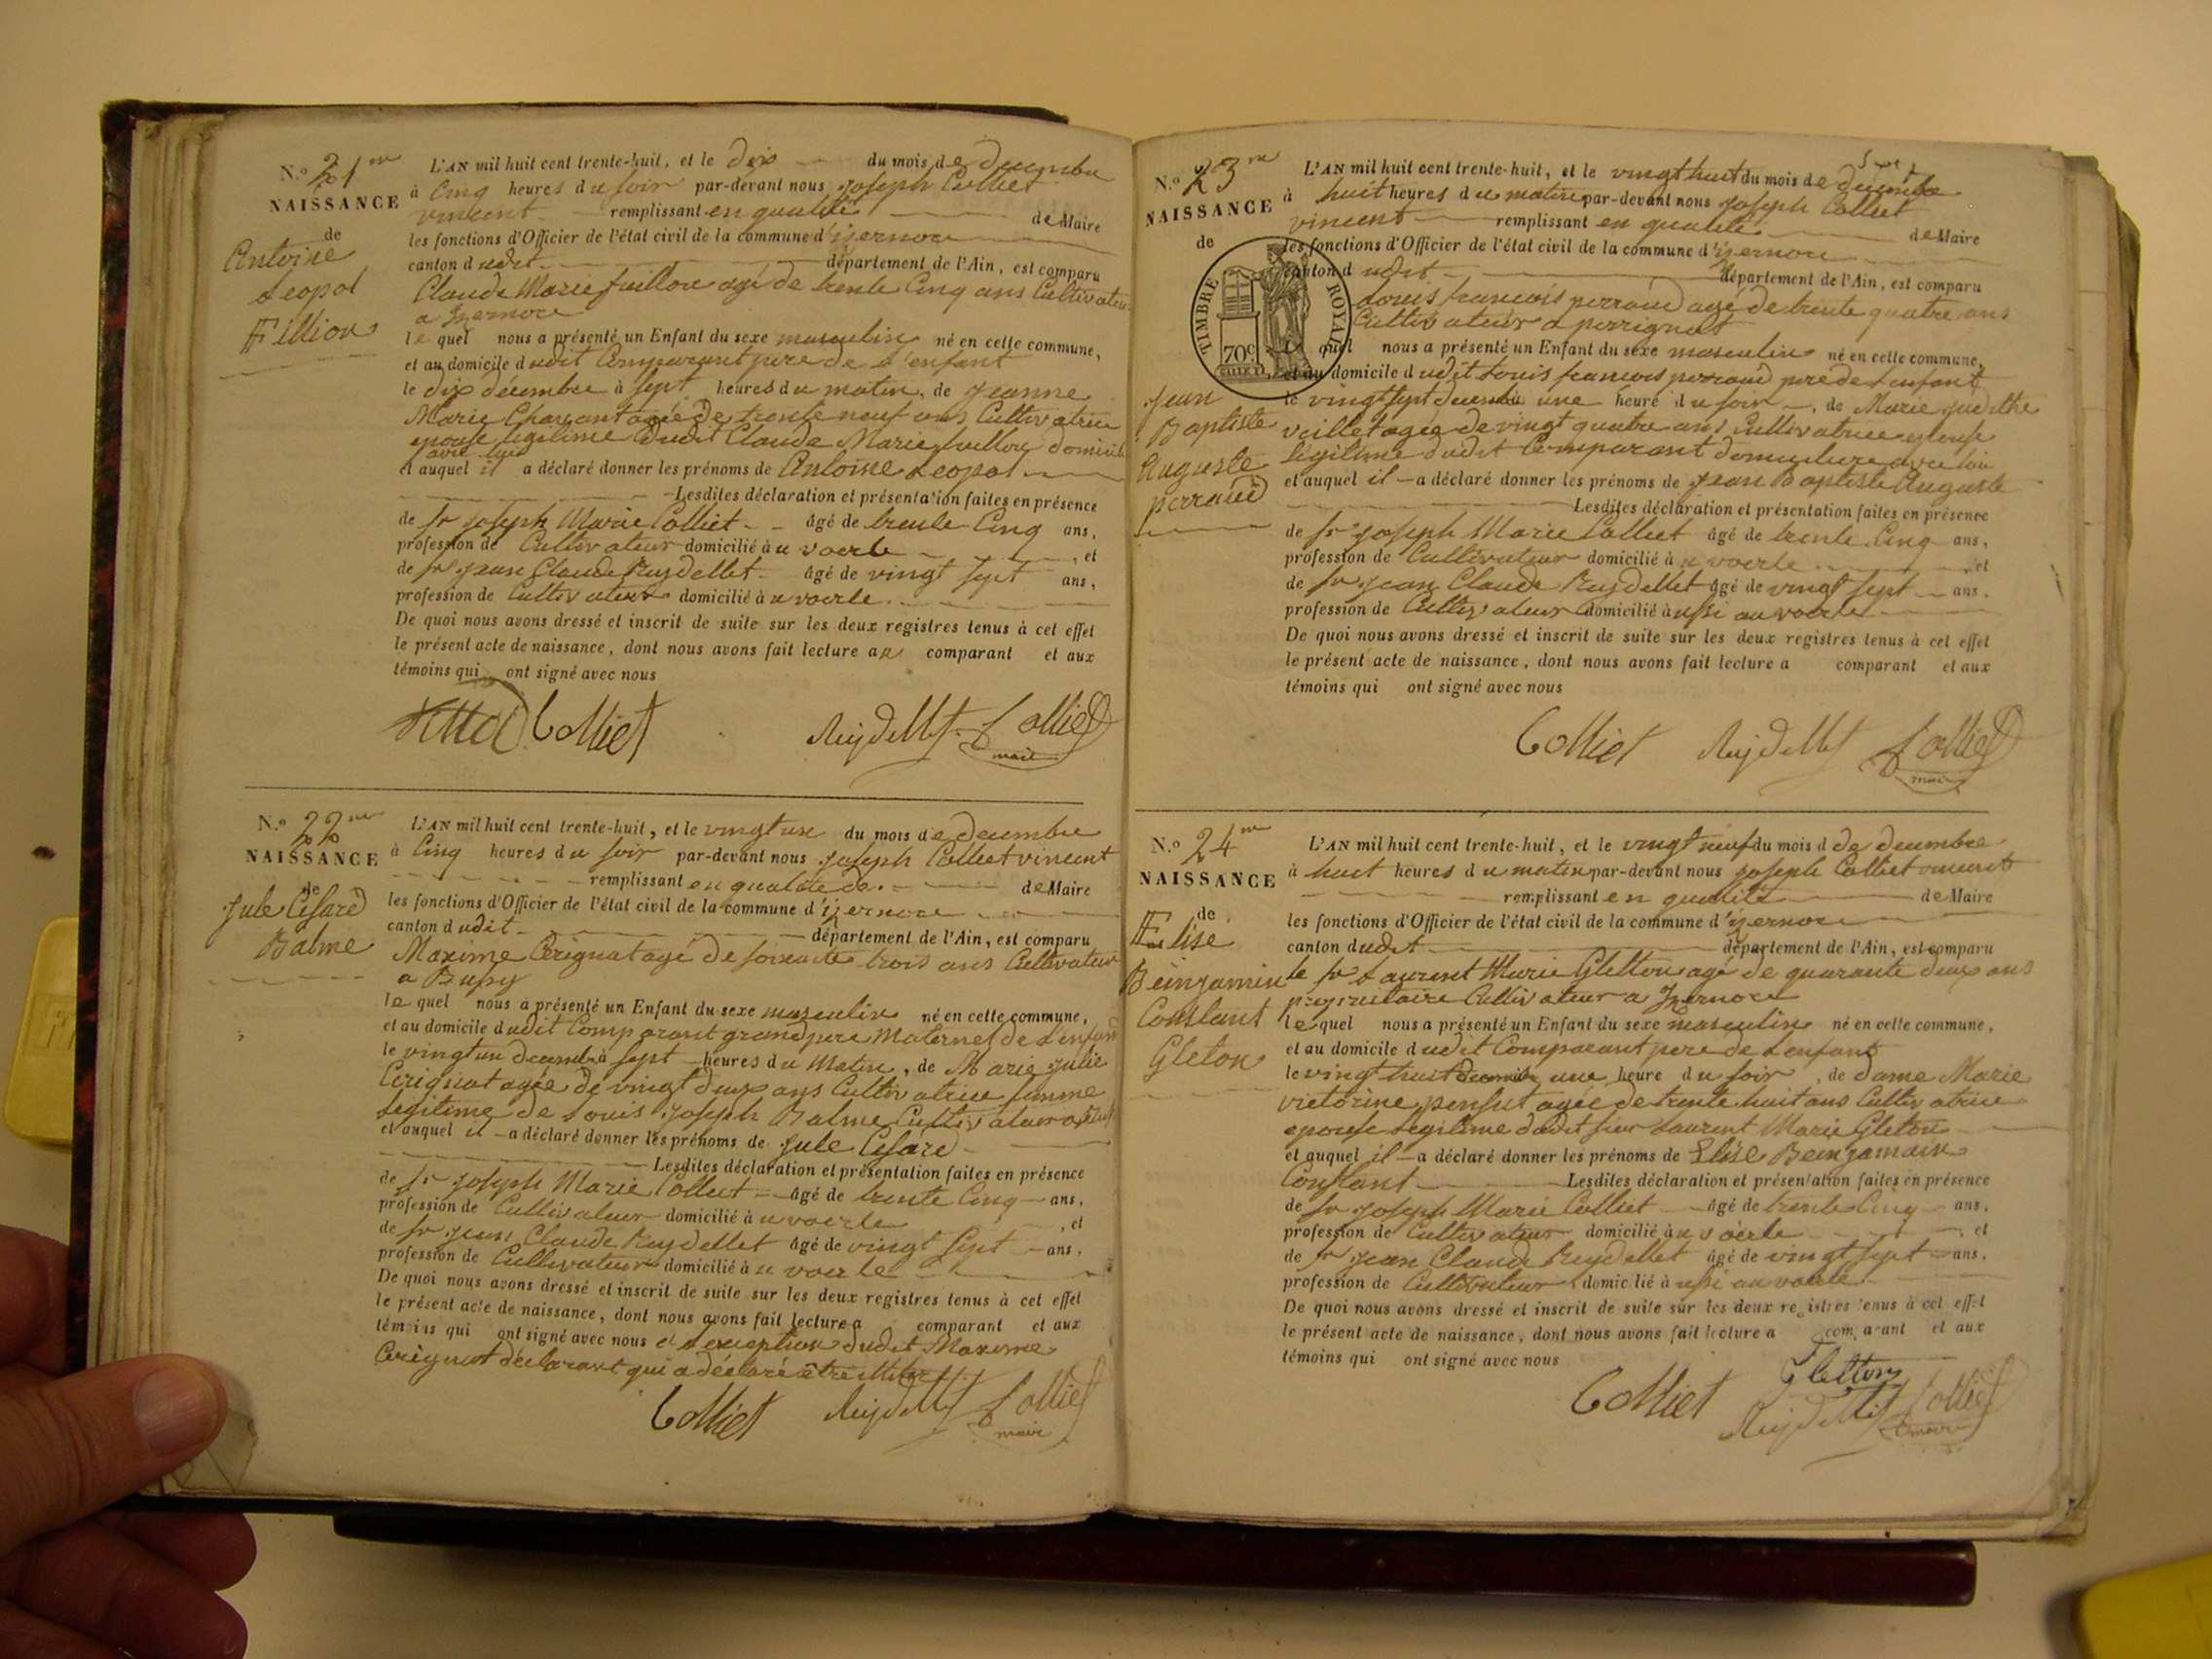 N.º 21me
NAISSANCE
de
Antoine
Leopol
Fillion
L'AN mil huit cent trente-huit, et le dix du mois de decembre
à Cinq heures du soir par-devant nous Joseph Colliet
vincent remplissant en qualité de Maire
les fonctions d'Officier de l'état civil de la commune d'izernore
canton dudit département de l'Ain, est comparu
Claude Marie fuillon agé de trente Cinq ans Cultivateur
a Izernore
lequel nous a présenté un Enfant du sexe masculin né en cette commune,
et au domicile dudit Comparant pere de l'enfant
le dix décembre à sept heures du matin, de Jeanne
Marie agée de trente neuf ans Cultivatrice
epouse legitime dudit Claude Marie fuillon domicilié
avec lui
et auquel il a déclaré donner les prénoms de Antoine Leopol
Lesdites déclaration et présentation faites en présence
de sr Joseph Marie Colliet âgé de trente Cinq ans,
profession de Cultivateur domicilié à u voerle, et
de sr Jean Claude Ruydellet âgé de vingt sept ans,
profession de Cultivateur domicilié à u voerle
De quoi nous avons dressé et inscrit de suite sur les deux registres tenus à cet effet
le présent acte de naissance, dont nous avons fait lecture au comparant et aux
témoins qui ont signé avec nous
Colliet Ruydellet Colliet
maire
N.º 22me
NAISSANCE
de
Jule Césard
Balme
L'AN mil huit cent trente-huit, et le vingt un du mois de decembre
à Cinq heures du soir par-devant nous Joseph Colliet vincent
remplissant en qualité de de Maire
les fonctions d'Officier de l'état civil de la commune d'izernore
canton dudit département de l'Ain, est comparu
Maxime Cerignat agé de soixante trois ans Cultivateur
a Bussy
lequel nous a présenté un Enfant du sexe masculin né en cette commune,
et au domicile dudit Comparant grand pere Maternel de L'enfant
le vingt un decembre à sept heures du Matin, de Marie Julie
Cerignat agée de vingt deux ans Cultivatrice femme
legitime de Louis Joseph Balme Cultivateur a
et auquel il a déclaré donner les prénoms de Jule Césard
Lesdites déclaration et présentation faites en présence
de sr Joseph Marie Colliet âgé de trente Cinq ans,
profession de Cultivateur domicilié à u voerle, et
de sr Jean Claude Ruydellet âgé de vingt sept ans,
profession de Cultivateur domicilié à u voerle
De quoi nous avons dressé et inscrit de suite sur les deux registres tenus à cet effet
le présent acte de naissance, dont nous avons fait lecture a comparant et aux
témoins qui ont signé avec nous a l'exception dudit Maxime
Cerignat déclarant qui a déclaré être
Colliet Ruydellet Colliet
maire
N.º 23me
NAISSANCE
de
TIMBRE ROYAL
70c
Jean
Baptiste
Auguste
perraud
L'AN mil huit cent trente-huit, et le vingt huit du mois de décembre
à huit heures du matin par-devant nous Joseph Colliet
vincent remplissant en qualité de Maire
les fonctions d'Officier de l'état civil de la commune d'izernore
canton dudit département de l'Ain, est comparu
Louis francois perraud agé de trente quatre ans
Cultivateur a perrignat
lequel nous a présenté un Enfant du sexe masculin né en cette commune,
et au domicile dudit Louis francois perraud pere de L'enfant
le vingt sept decembre une heure du soir, de Marie Judithe
veillet agée de vingt quatre ans Cultivatrice epouse
légitime dudit Comparant domiciliée avec lui
et auquel il a déclaré donner les prénoms de Jean Baptiste Auguste
Lesdites déclaration et présentation faites en présence
de sr Joseph Marie Colliet âgé de trente Cinq ans,
profession de Cultivateur domicilié à u voerle, et
de sr Jean Claude Ruydellet âgé de vingt sept ans,
profession de Cultivateur domicilié à ussi au voerle
De quoi nous avons dressé et inscrit de suite sur les deux registres tenus à cet effet
le présent acte de naissance, dont nous avons fait lecture a comparant et aux
témoins qui ont signé avec nous
Colliet Ruydellet Colliet
maire
N.º 24me
NAISSANCE
de
Elise
Beinjamin
Constant
Gleton
L'AN mil huit cent trente-huit, et le vingt neuf du mois d de decembre
à huit heures du matin par-devant nous Joseph Colliet vincent
remplissant en qualité de Maire
les fonctions d'Officier de l'état civil de la commune d'izernore
canton dudit département de l'Ain, est comparu
le sr Laurent Marie Gletton agé de quarante deux ans
proprietaire Cultivateur a Izernore
lequel nous a présenté un Enfant du sexe masculin né en cette commune,
et au domicile dudit Comparant pere de L'enfant
le vingt huit decembre une heure du soir, de dame Marie
victorine agée de trente huit ans Cultivatrice
epouse legitime dudit sieur Laurent Marie Gleton
et auquel il a déclaré donner les prénoms de Elise Beinjamain
Constant Lesdites déclaration et présentation faites en présence
de sr Joseph Marie Colliet âgé de trente Cinq ans,
profession de Cultivateur domicilié à u voerle, et
de sr Jean Claude Ruydellet âgé de vingt sept ans,
profession de Cultivateur domicilié à ussi au voerle
De quoi nous avons dressé et inscrit de suite sur les deux registres tenus à cet effet
le présent acte de naissance, dont nous avons fait lecture a comparant et aux
témoins qui ont signé avec nous
Gletton
Colliet Ruydellet Colliet
maire